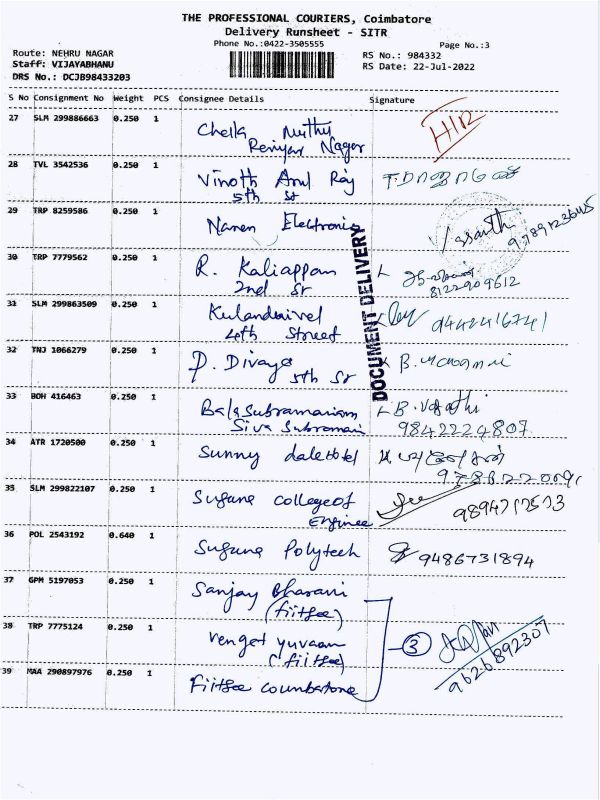 THE PROFESSIONAL COURIERS, Coimbatore
Delivery Runsheet - SITR
Phone No.:0422-3505555
Page No.:3
Route: NEHRU NAGAR
Staff: VIJAYABHANU
DRS No.: DCJB98433203
RS No.: 984332
RS Date: 22-Jul-2022
S No Consignment No Weight PCS Consignee Details Signature
27 SLM 299886663 0.250 1
Nagar
28 TVL 3542536 0.250 1 Vinoth Arul Raj
5th St
29 TRP 8259586 0.250 1 Naren Electronics
30 TRP 7779562 0.250 1 R. Kaliappan
2nd St 8122909612
31 SLM 299863509 0.250 1 Kulandaivel 9442416741
4th Street
32 TNJ 1066279 0.250 1 P. Divaya
5th St
33 BOH 416463 0.250 1 Balasubramaniam
Siva Subramani 9842224807
34 ATR 1720500 0.250 1 Sunny dale
35 SLM 299822107 0.250 1 Suguna college of
Enginee
36 POL 2543192 0.640 1 Suguna Polytech 9486731894
37 GPM 5197053 0.250 1 Sanjay Bharani
(fiitjee)
38 TRP 7775124 0.250 1 Venget yuvaan 3
(fiitjee) 9626892307
39 MAA 290897976 0.250 1 Fiitjee
DOCUMENT DELIVERY